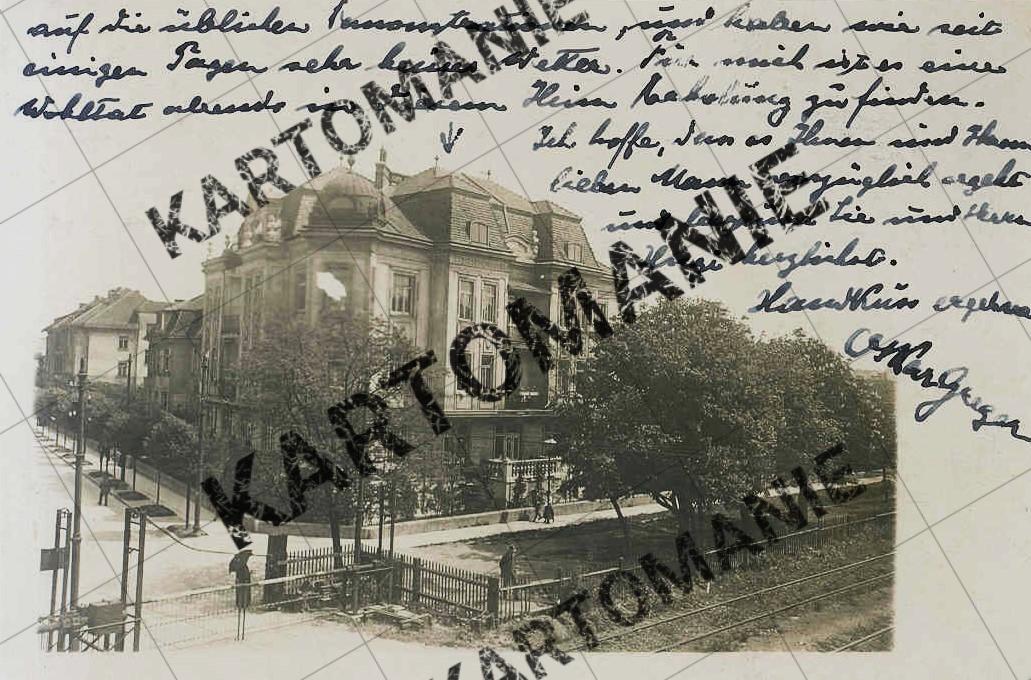 auf die üblichen , und haben wir seit
einigen Tagen sehr Wetter. Für mich ist es eine
Wohltat abends in Heim zu finden.
Ich hoffe, dass es Ihnen und Ihrem
lieben Mann vorzüglich ergeht
und Sie und
herzlichst.
Handkuss
Oskar
KARTOMANIE
KARTOMANIE
KARTOMANIE
KARTOMANIE
KARTOMANIE